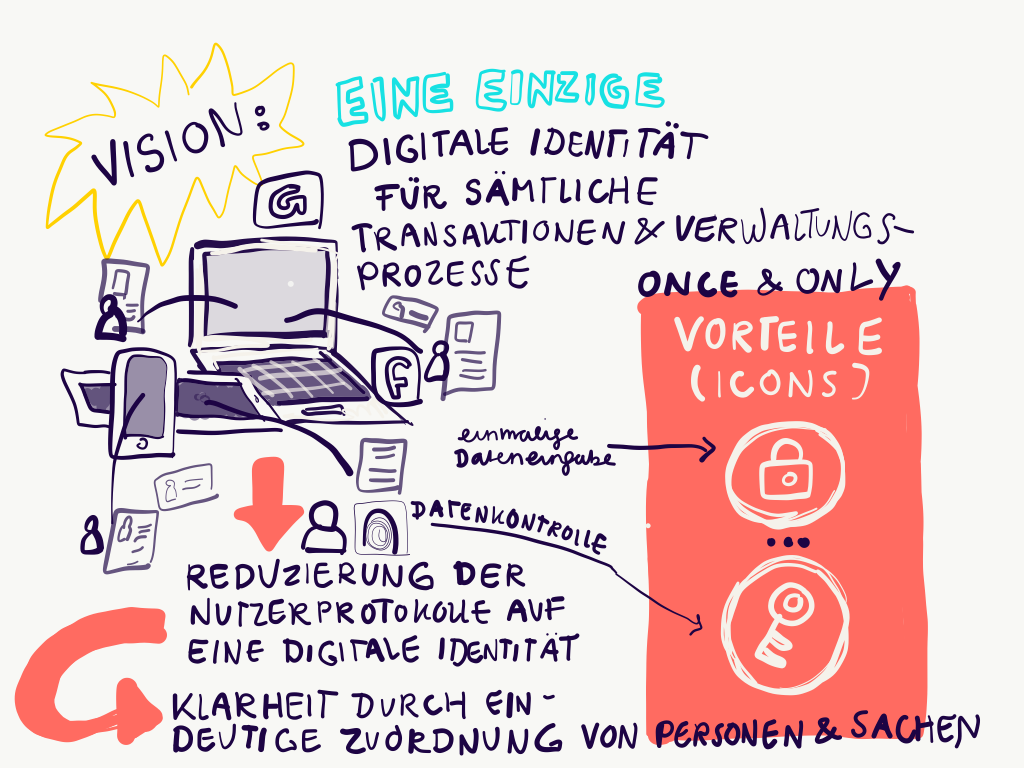 VISION:
EINE EINZIGE
DIGITALE IDENTITÄT
FÜR SÄMTLICHE
TRANSAKTIONEN & VERWALTUNGS-
PROZESSE
ONCE & ONLY
G
F
VORTEILE
(ICONS)
einmalige
Dateneingabe
DATENKONTROLLE
...
REDUZIERUNG DER
NUTZERPROTOKOLLE AUF
EINE DIGITALE IDENTITÄT
KLARHEIT DURCH EIN-
DEUTIGE ZUORDNUNG VON PERSONEN & SACHEN